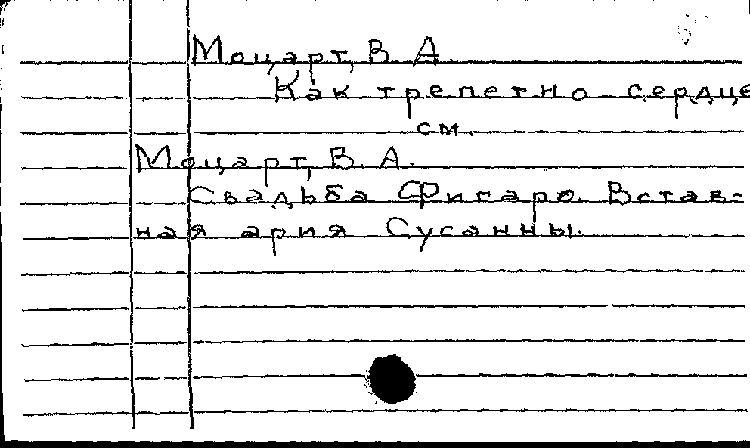 Моцарт, В. А.
Как трепетно сердце
см.
Моцарт, В. А.
Свадьба Фигаро. Встав-
ная ария Сусанны.